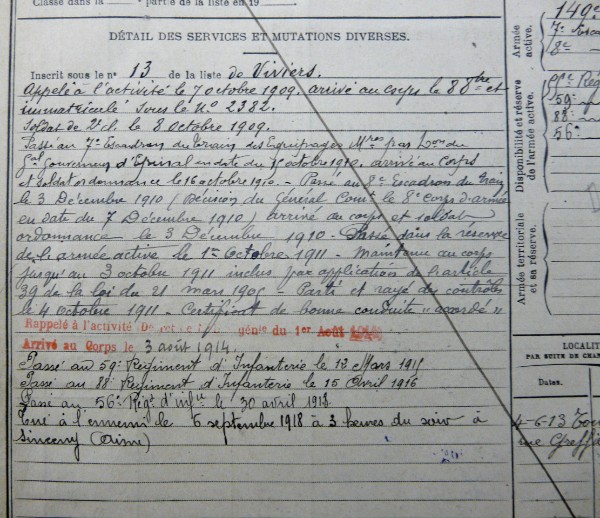 Classe dans la
partie de la liste en 19
DÉTAIL DES SERVICES ET MUTATIONS DIVERSES.
Inscrit sous le n° 13 de la liste de Viviers.
Appelé à l'activité le 7 octobre 1909. arrivé au corps le 8 8bre et
immatriculé sous le N° 2382.
Soldat de 2e cl. le 8 octobre 1909.
Passé au 7e Escadron du train des Equipages Mres par
Gal Gouverneur d'Epinal en date du octobre 1910, arrivé au corps
et soldat ordonnance le 16 octobre 1910. - Passé au 8e Escadron du train
le 3 Décembre 1910 (Décision du Général Comt le 8e Corps d'armée
en date du 7 Décembre 1910) arrivé au corps et soldat
ordonnance le 3 Décembre 1910 - Passé dans la réserve
de l'armée active le 1er Octobre 1911 - Maintenu au corps
jusqu'au 3 octobre 1911 inclus par application de l'article
39 de la loi du 21 mars 1905 - Parti et rayé des contrôles
le 4 octobre 1911 - Certificat de bonne conduite "accordé"
Rappelé à l'activité du 1er Août
Arrivé au Corps le 3 août 1914.
Passé au 59e Régiment d'Infanterie le 12 Mars 1915
Passé au 88e Régiment d'Infanterie le 15 Avril 1916
Passé au 56e Régt d'infie le 30 avril 1918
Tué à l'ennemi le 6 septembre 1918 à 3 heures du soir à
Sinceny (Aisne)
Armée
active.
140e
7e Esca
8e
Disponibilité et réserve
de l'armée active.
Rég
59e
88e
56e
Armée territoriale
et sa réserve.
LOCALIT
PAR SUITE DE CHAN
Dates.
4-6-13
rue